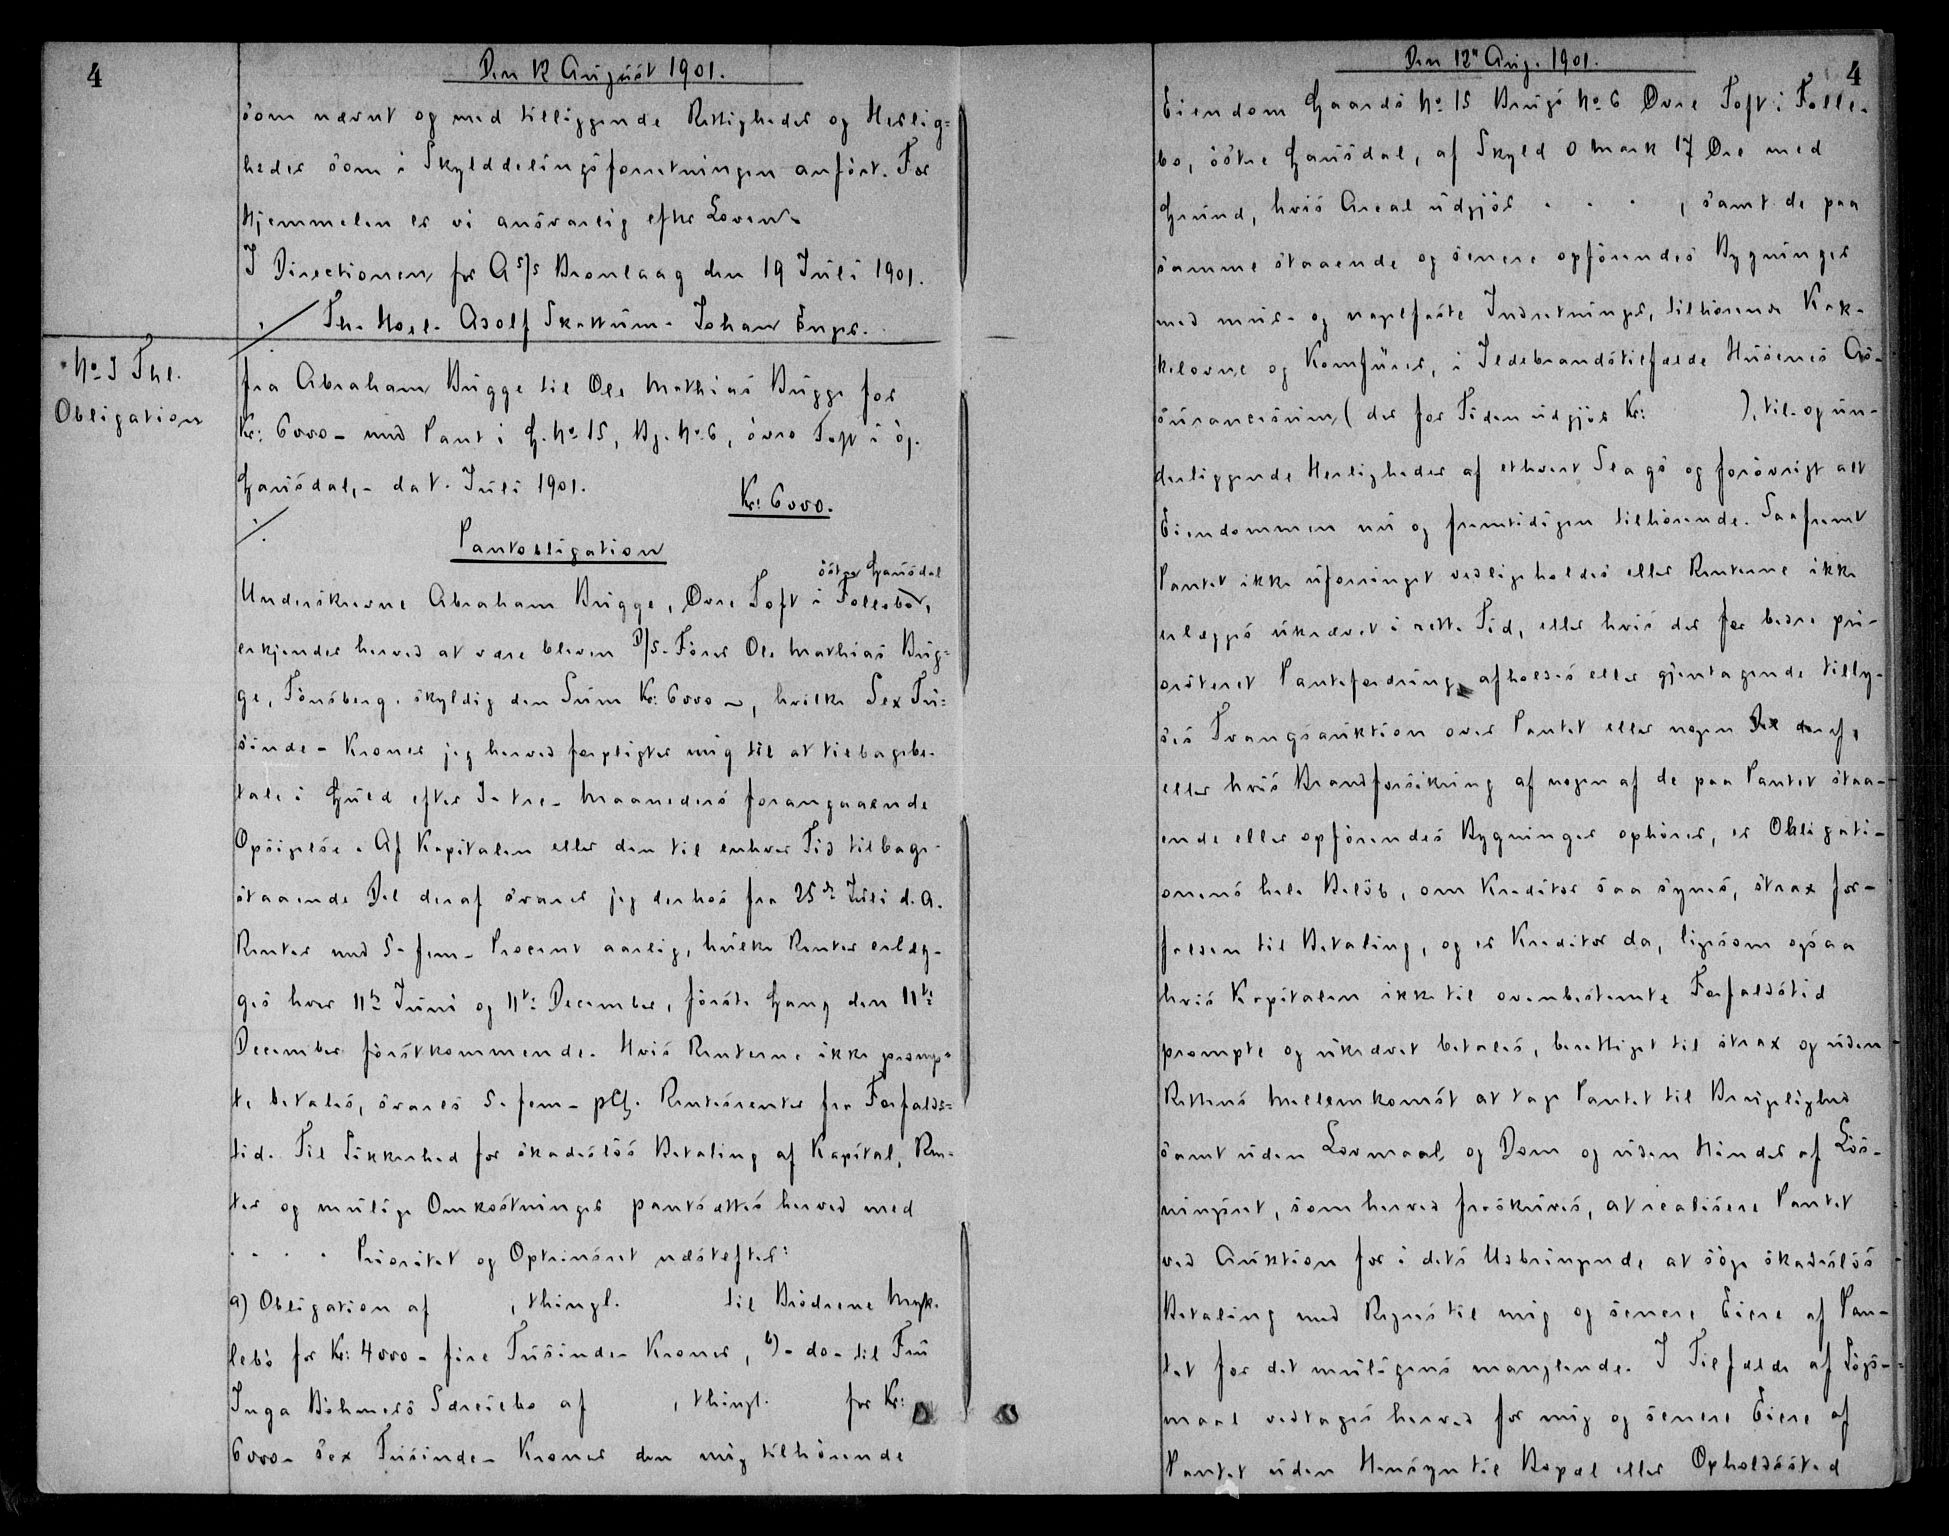 4
Den 12 August 1901.
som nævnt og med tilliggende Rettigheder og Herlig=
heder som i Skylddelingsforretningen anført. For
Hjemmelen er vi ansvarlig efter Loven.
I Directionen for A s/s Bronlaag den 19 Juli 1901.
Th. Adolf Skattum. Johan Enger.
No 3 Thl.
Obligation
fra Abraham Bugge til Ole Mathias Bugge for
Kr: 6000 - med Pant i G. No 15, Bg. No 6, övre Toft i ö.
Gausdal, - dat. Juli 1901.
Kr: 6000.
Pantobligation
östre Gausdal
Underskrevne Abraham Bugge, Övre Toft i Follebo,
erkjender herved at være bleven D/S. Förer Ole Mathias Bug=
ge, Tönsberg, skyldig den Sum Kr: 6000 -, hvilke Sex Tu=
sinde - Kroner jeg herved forpligter mig til at tilbagebe-
tale i Guld efter 3 - tre - Maaneders forangaaende
Opsigelse. Af Kapitalen eller den til enhver Tid tilbage-
staaende Del deraf svarer jeg derhos fra 25de Juli d. A.
Renter med 5 - fem - Procent aarlig, hvilke Renter erlæg-
ges hver 11te Juni og 11te December, förste Gang den 11te
December förstkommende. Hvis Renterne ikke promp=
te betales, svares 5 - fem - pCt. Rentesrenter fra Forfalds=
tid. Til Sikkerhed for skadeslös Betaling af Kapital, Ren-
ter og mulige Omkostninger pantsættes herved med
. . . . Prioritet og Optrinsret næstefter:
a) Obligation af , thingl. til Brödrene Myk-
lebö for Kr: 4000 - fire Tusinde - Kroner, b) - do - til Fru
Inga Böhmers Særeiebo af , thingl. for Kr:
6000 - sex Tusinde - Kroner den mig tilhörende
4
Den 12te Aug. 1901.
Eiendom Gaards No 15 Brugs No 6 Övre Toft i Folle-
bo, östre Gausdal, af Skyld 0 Mark 17 Öre med
Grund, hvis Areal udgjör . . . , samt de paa
samme staaende og senere opförendes Bygninger
med mur- og nagelfaste Indretninger, tilhörende Kak-
kelovne og Komfürer, i Ildebrandstilfælde Husenes As-
surancesum (der for Tiden udgjör Kr: ), til- og un-
derliggende Herligheder af ethvert Slags og forövrigt alt
Eiendommen nu og fremtidigen tilhörende. Saafremt
Pantet ikke uforringet vedligeholdes eller Renterne ikke
erlægges ukrævet i rette Tid, eller hvis der for bedre pri-
oriteret Pantefordring afholdes eller gjentagende tilly-
ses Tvangsauktion over Pantet eller nogen Del deraf,
eller hvis Brandforsikring af nogen af de paa Pantet staa-
ende eller opförendes Bygninger ophörer, er Obligati-
onens hele Belöb, om Kreditor saa synes, strax for-
falden til Betaling, og er Kreditor da, ligesom ogsaa
hvis Kapitalen ikke til ovenbestemte Forfaldstid
prompte og ukrævet betales, berettiget til strax og uden
Rettens Mellemkomst at tage Pantet til Brugelighed
samt uden Lovmaal og Dom og uden Hinder af Lös-
ningsret, som herved fraskrives, at realisere Pantet
ved Auktion for i dets Udbringende at söge skadeslös
Betaling med Regres til mig og senere Eiere af Pan-
tet for det muligens manglende. I Tilfælde af Sögs-
maal vedtages herved for mig og senere Eiere af
Pantet uden Hensyn til Bopæl eller Opholdssted